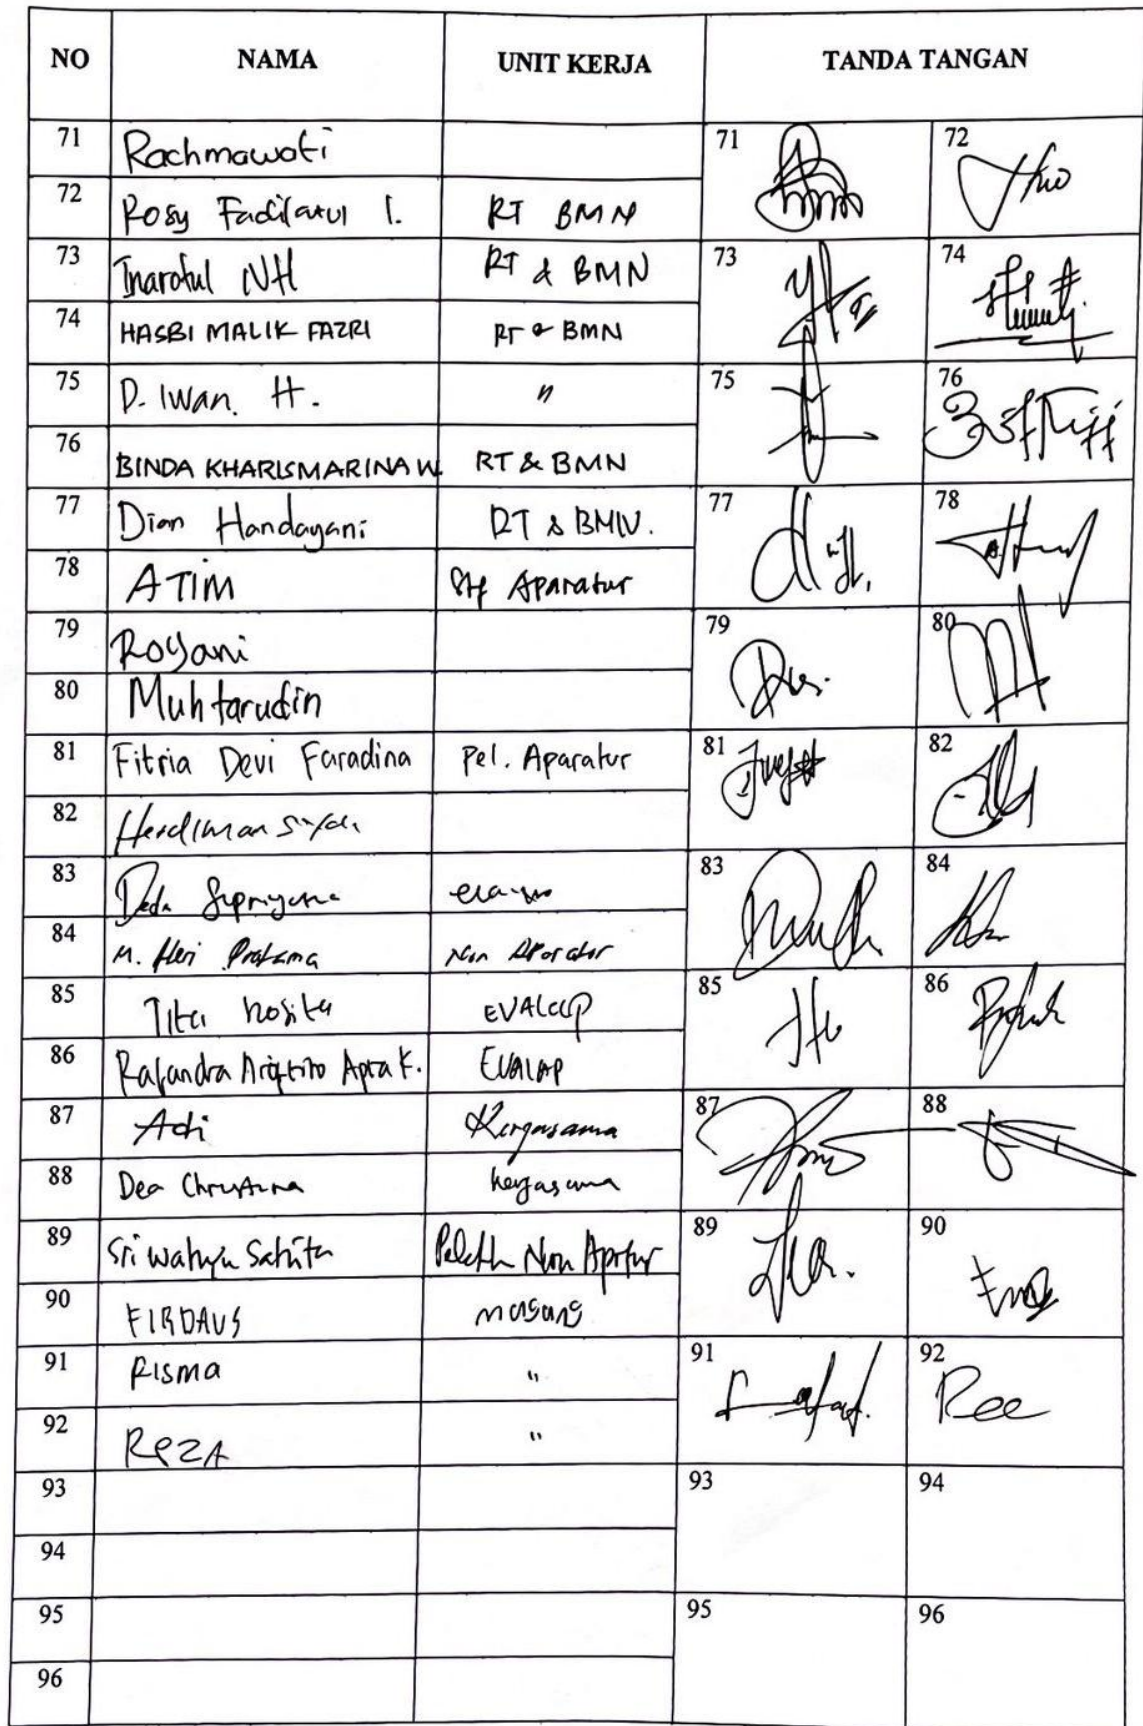 NO NAMA UNIT KERJA TANDA TANGAN
71 Rachmawati 71 72
72 Rosy Fadilatul I. RT BMN
73 Inarotul NH RT & BMN 73 74
74 HASBI MALIK FAZRI RT & BMN
75 D. Iwan. H. " 75 76
76 BINDA KHARISMARINA W. RT & BMN
77 Dian Handayani RT & BMN. 77 78
78 ATIM Aparatur
79 Royani 79 80
80 Muhtarudin
81 Fitria Devi Faradina Pel. Aparatur 81 82
82 Herdiman
83 Supriyatna 83 84
84 M. Heri Pratama Non
85 Tita Rosita EVALAP 85 86
86 Rafandra Apta F. EVALAP
87 Adi Kerjasama 87 88
88 Dea Christina Kerjasama
89 Sri Wahyu Non 89 90
90 FIRDAUS magang
91 RISMA " 91 92
92 REZA " Ree
93 93 94
94
95 95 96
96